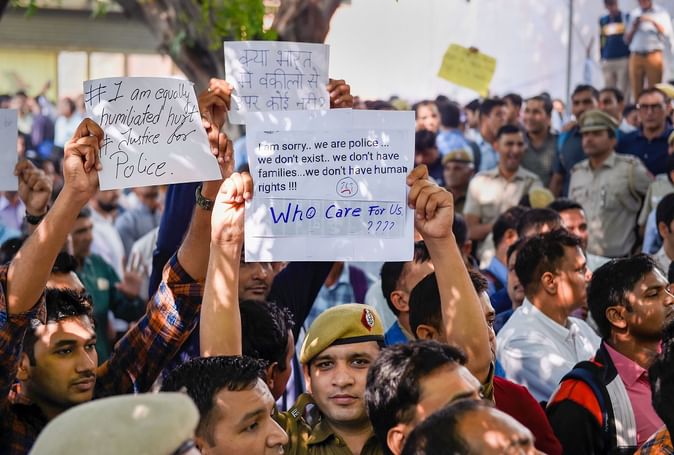 #I am equally
humbated hurt
# Justice for
Police.
क्या भारत
में वकीलों से
ऊपर कोई नहीं
I am sorry.. we are police ...
we don't exist.. we don't have
families...we don't have human
rights !!!
Who Care For Us
????